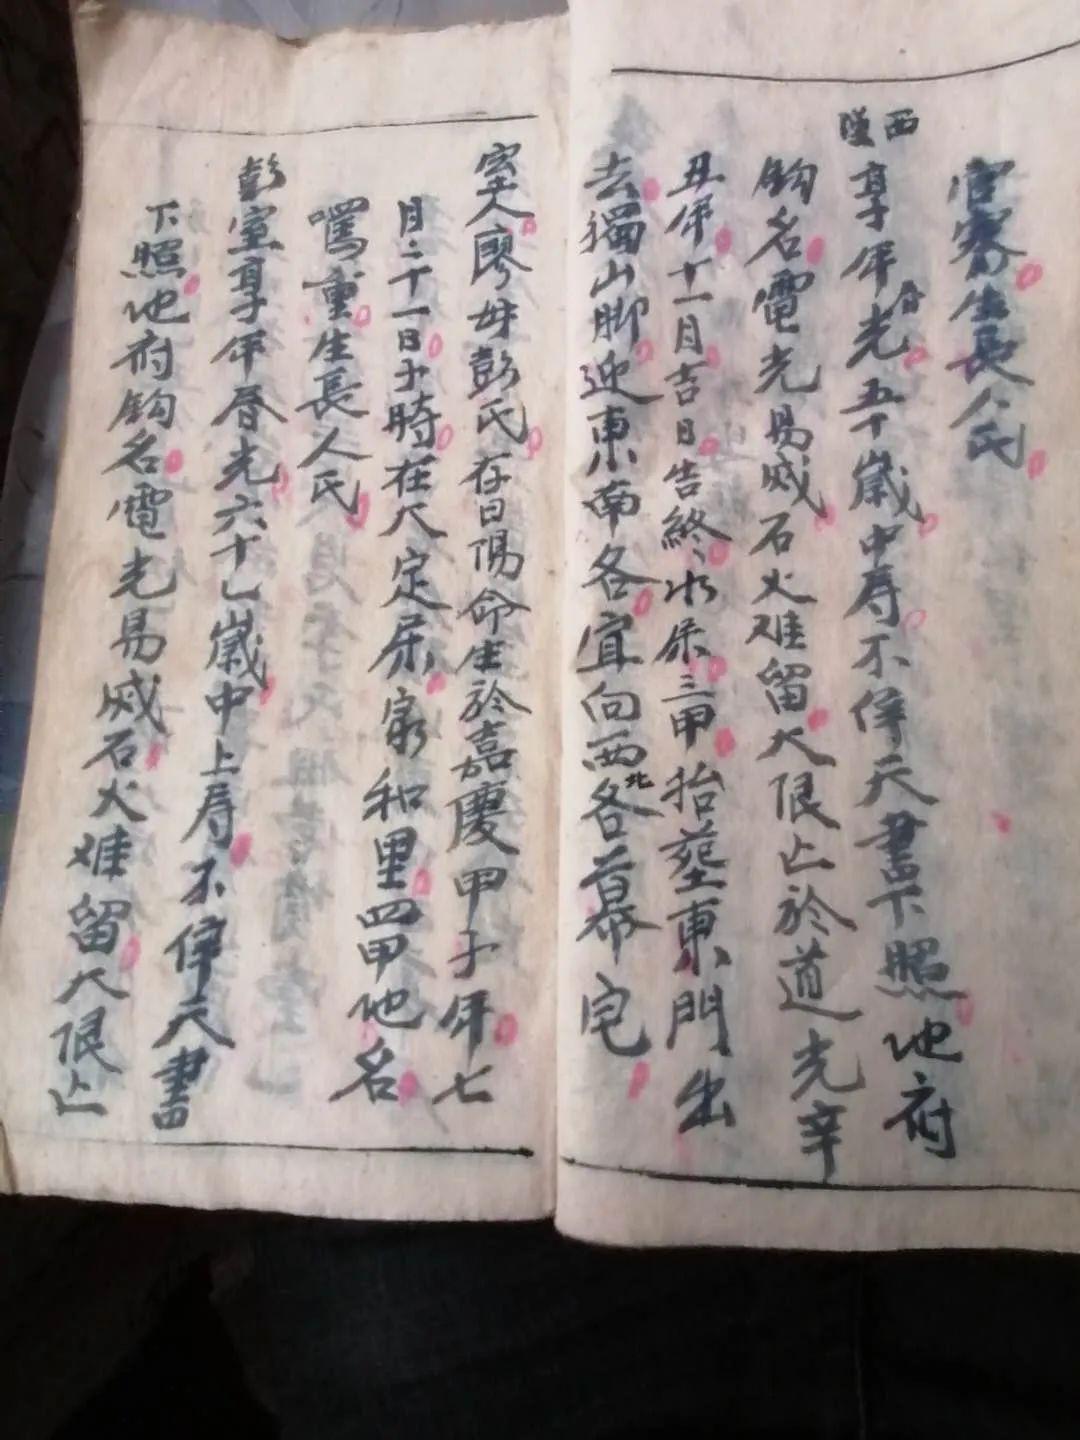 官寨生長人氏
西
享年光合五十歲中壽不停天書下照地府
鈎名電光易滅石火难留大限亡於道光辛
丑年十一月吉日告終水保三甲抬塟東門出
去獨山脚迎東南各宜向西北各募宅
室人廖母彭氏存日陽命生於嘉慶甲子年七
月二十一日子時在大定府家和里四甲地名
重生長人氏
彭室享年唇光六十七歲中上壽不停天書
下照地府鈎名電光易滅石火难留大限亡